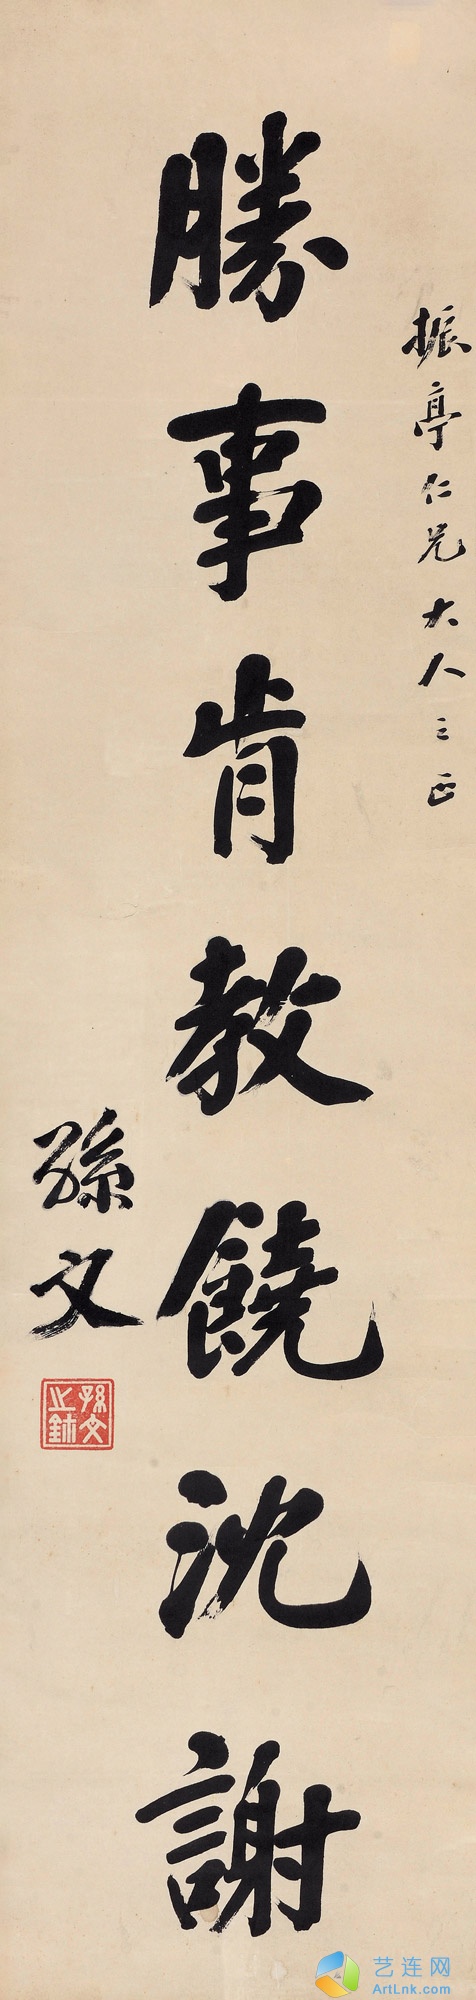 振亭仁兄大人之正
勝事肯教饒沈謝
孫文
孫文之鉢
艺连网
ArtLnk.com